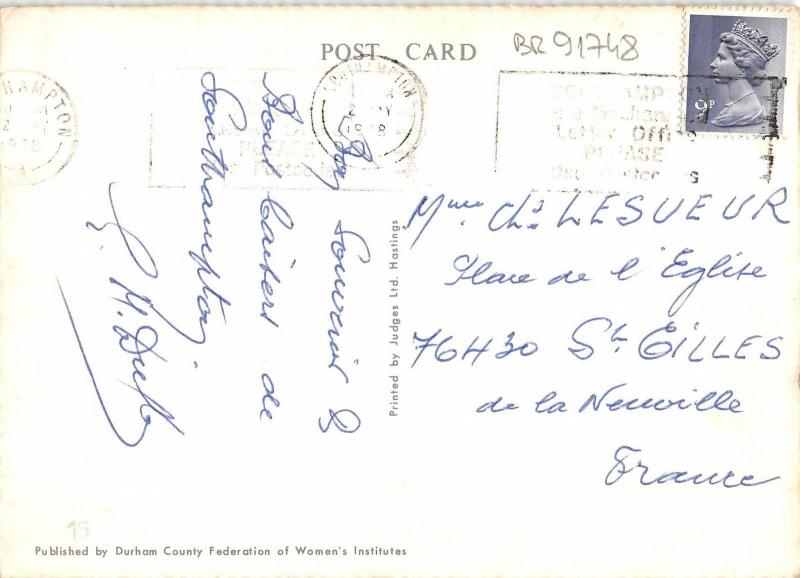 POST CARD
BR 91748
SOUTHAMPTON
1978
HAMPTON
1978
9P
PLEASE
Letter Office
PLEASE
Bon Souvenir &
Bons baisers de
Southampton
Mme Chs LESUEUR
Place de l'Eglise
76430 St. GILLES
de la Neuville
France
Printed by Judges Ltd. Hastings
15
Published by Durham County Federation of Women's Institutes